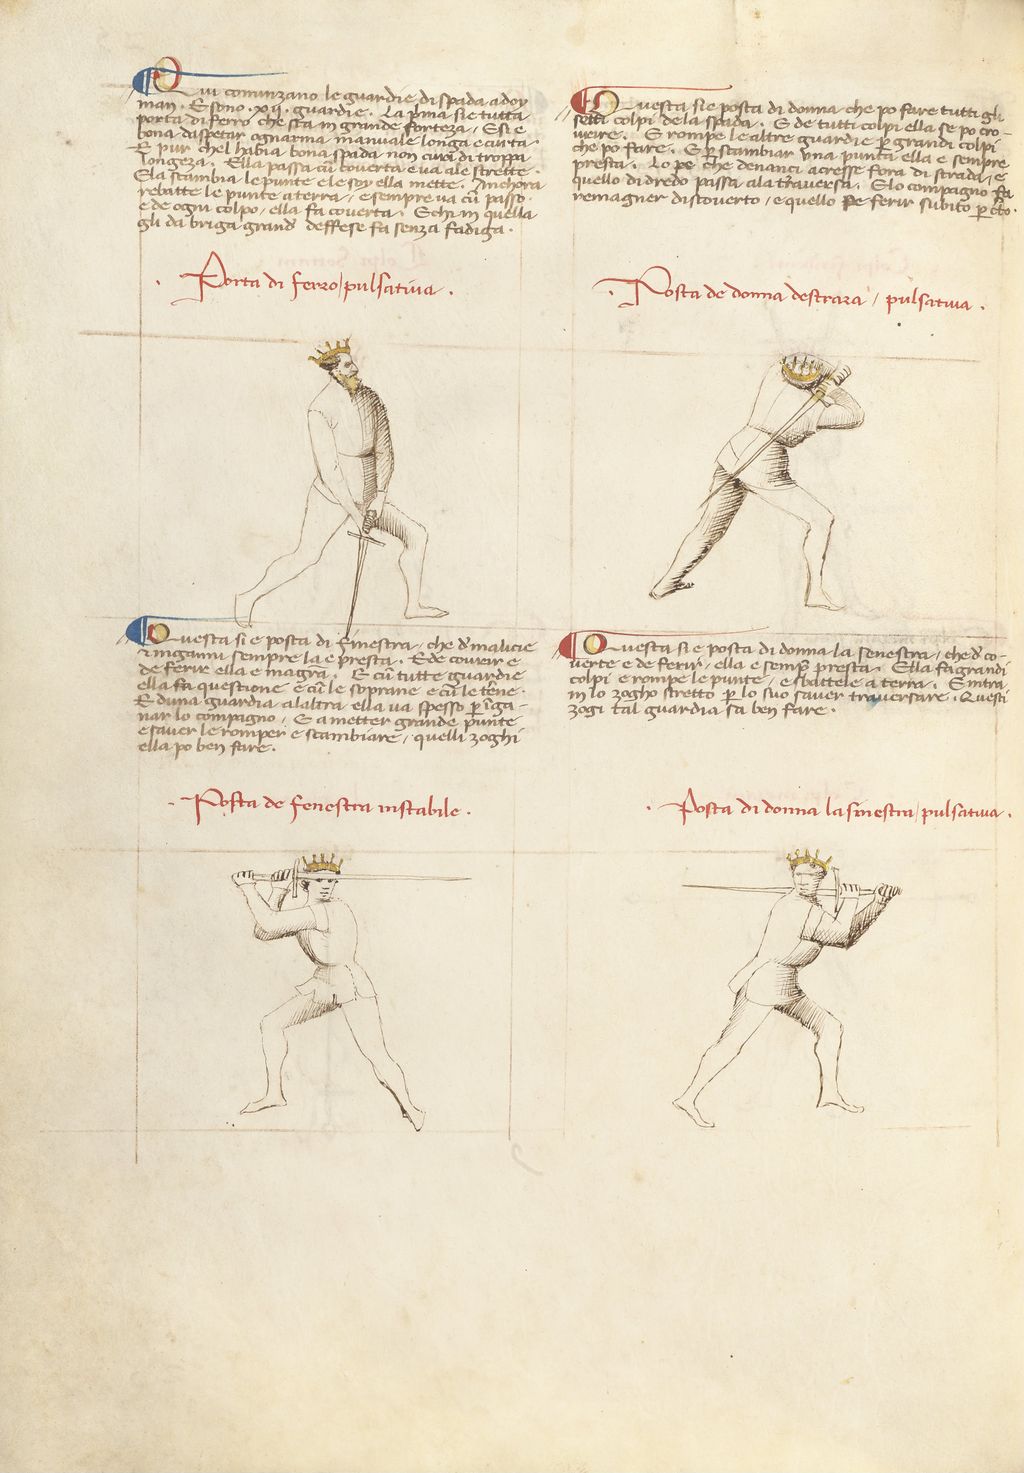 Qui cominzano le guardie di spada a doy
man. E sono .xij. guardie. La p'ma sie tutta
porta di ferro che sta in grande forteza, E si e
bona daspetar ognarma manuale longa e curta.
E pur chel habia bona spada non cura di troppa
longeza. Ella passa cū coverta e va ale strette.
Ela scambia le punte e le soy ella mette. Anchora
rebatte le punte a terra, e sempre va cū passo.
e de ogni colpo, ella fa coverta. E chi in quella
gli da briga grand' deffese fa senza fadiga.
. Porta di ferro, pulsativa .
Questa si e posta di donna che po fare tutti gli
setti colpi dela spada. E de tutti colpi ella se po cro-
vrire. E rompe le altre guardie p grandi colpi
che po fare. E p scambiar una punta ella e sempre
presta. Lo pe che denanci acresse fora di strada, e
quello di dredo passa ala traversa. E lo compagno fa
remagner discoverto, e quello pe ferir subito p c'to.
. Posta de donna destraza, pulsativa .
Questa si e posta di finestra, che d' malicie
e inganni sempre la e presta. E de covrir e
de ferire ella e magrā. E cū tutte guardie
ella fa questione e cū le soprane e cū le t'ene.
E d'una guardia a laltra ella va spesso p īga-
nar lo compagno, E a metter grande punte
e saver le romper e scambiare, quelli zoghi
ella po ben fare.
. Posta de fenestra instabile .
Questa si e posta di donna la senestra, che d' co-
verte e de ferir, ella e semp presta. Ella fa grandi
colpi e rompe le punte, e sbattele a terra. E intra
in lo zogho stretto p lo suo saver traversare. Questi
zogi tal guardia sa ben fare.
. Posta di donna la sinestra, pulsativa .